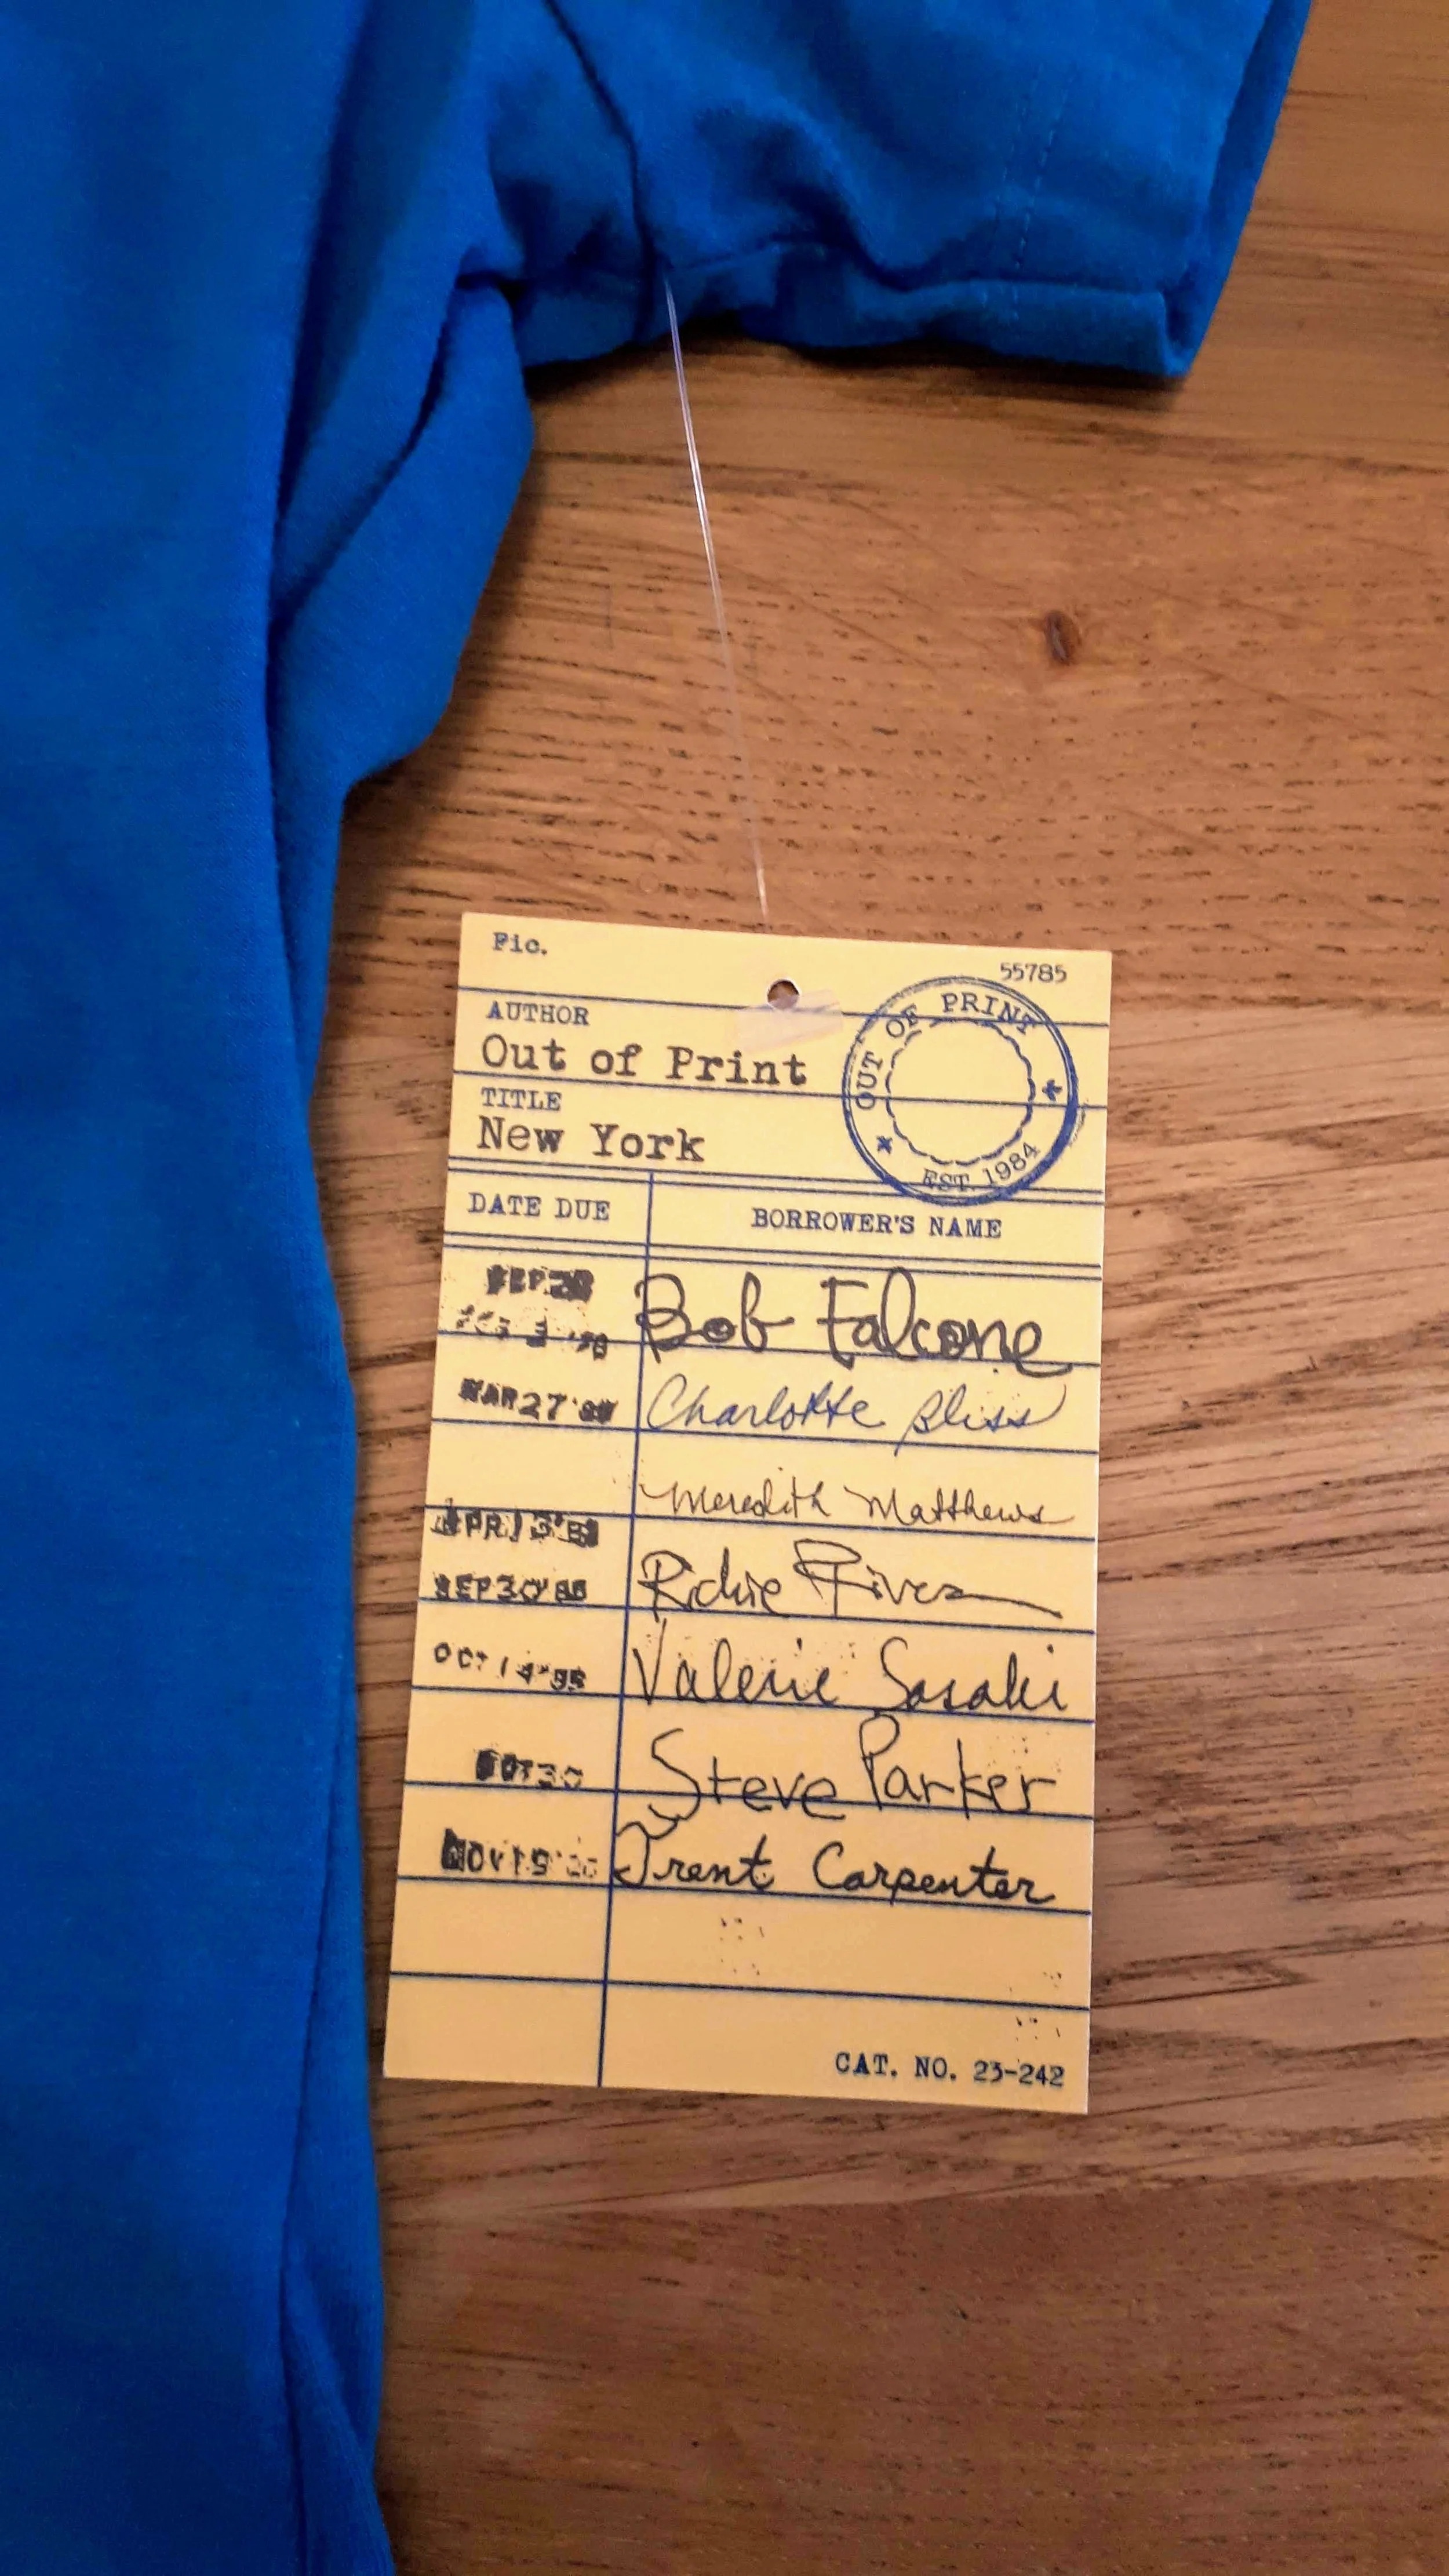 Fic.
55785
AUTHOR
Out of Print
OUT OF PRINT
EST. 1984
TITLE
New York
DATE DUE BORROWER'S NAME
SEP 28
Bob Falcone
MAR 27 Charlotte Bliss
Meredith Matthews
APR 13
SEP 30 Richie Rivera
OCT 14 Valerie Sasaki
OCT 30 Steve Parker
NOV 19 Trent Carpenter
CAT. NO. 23-242